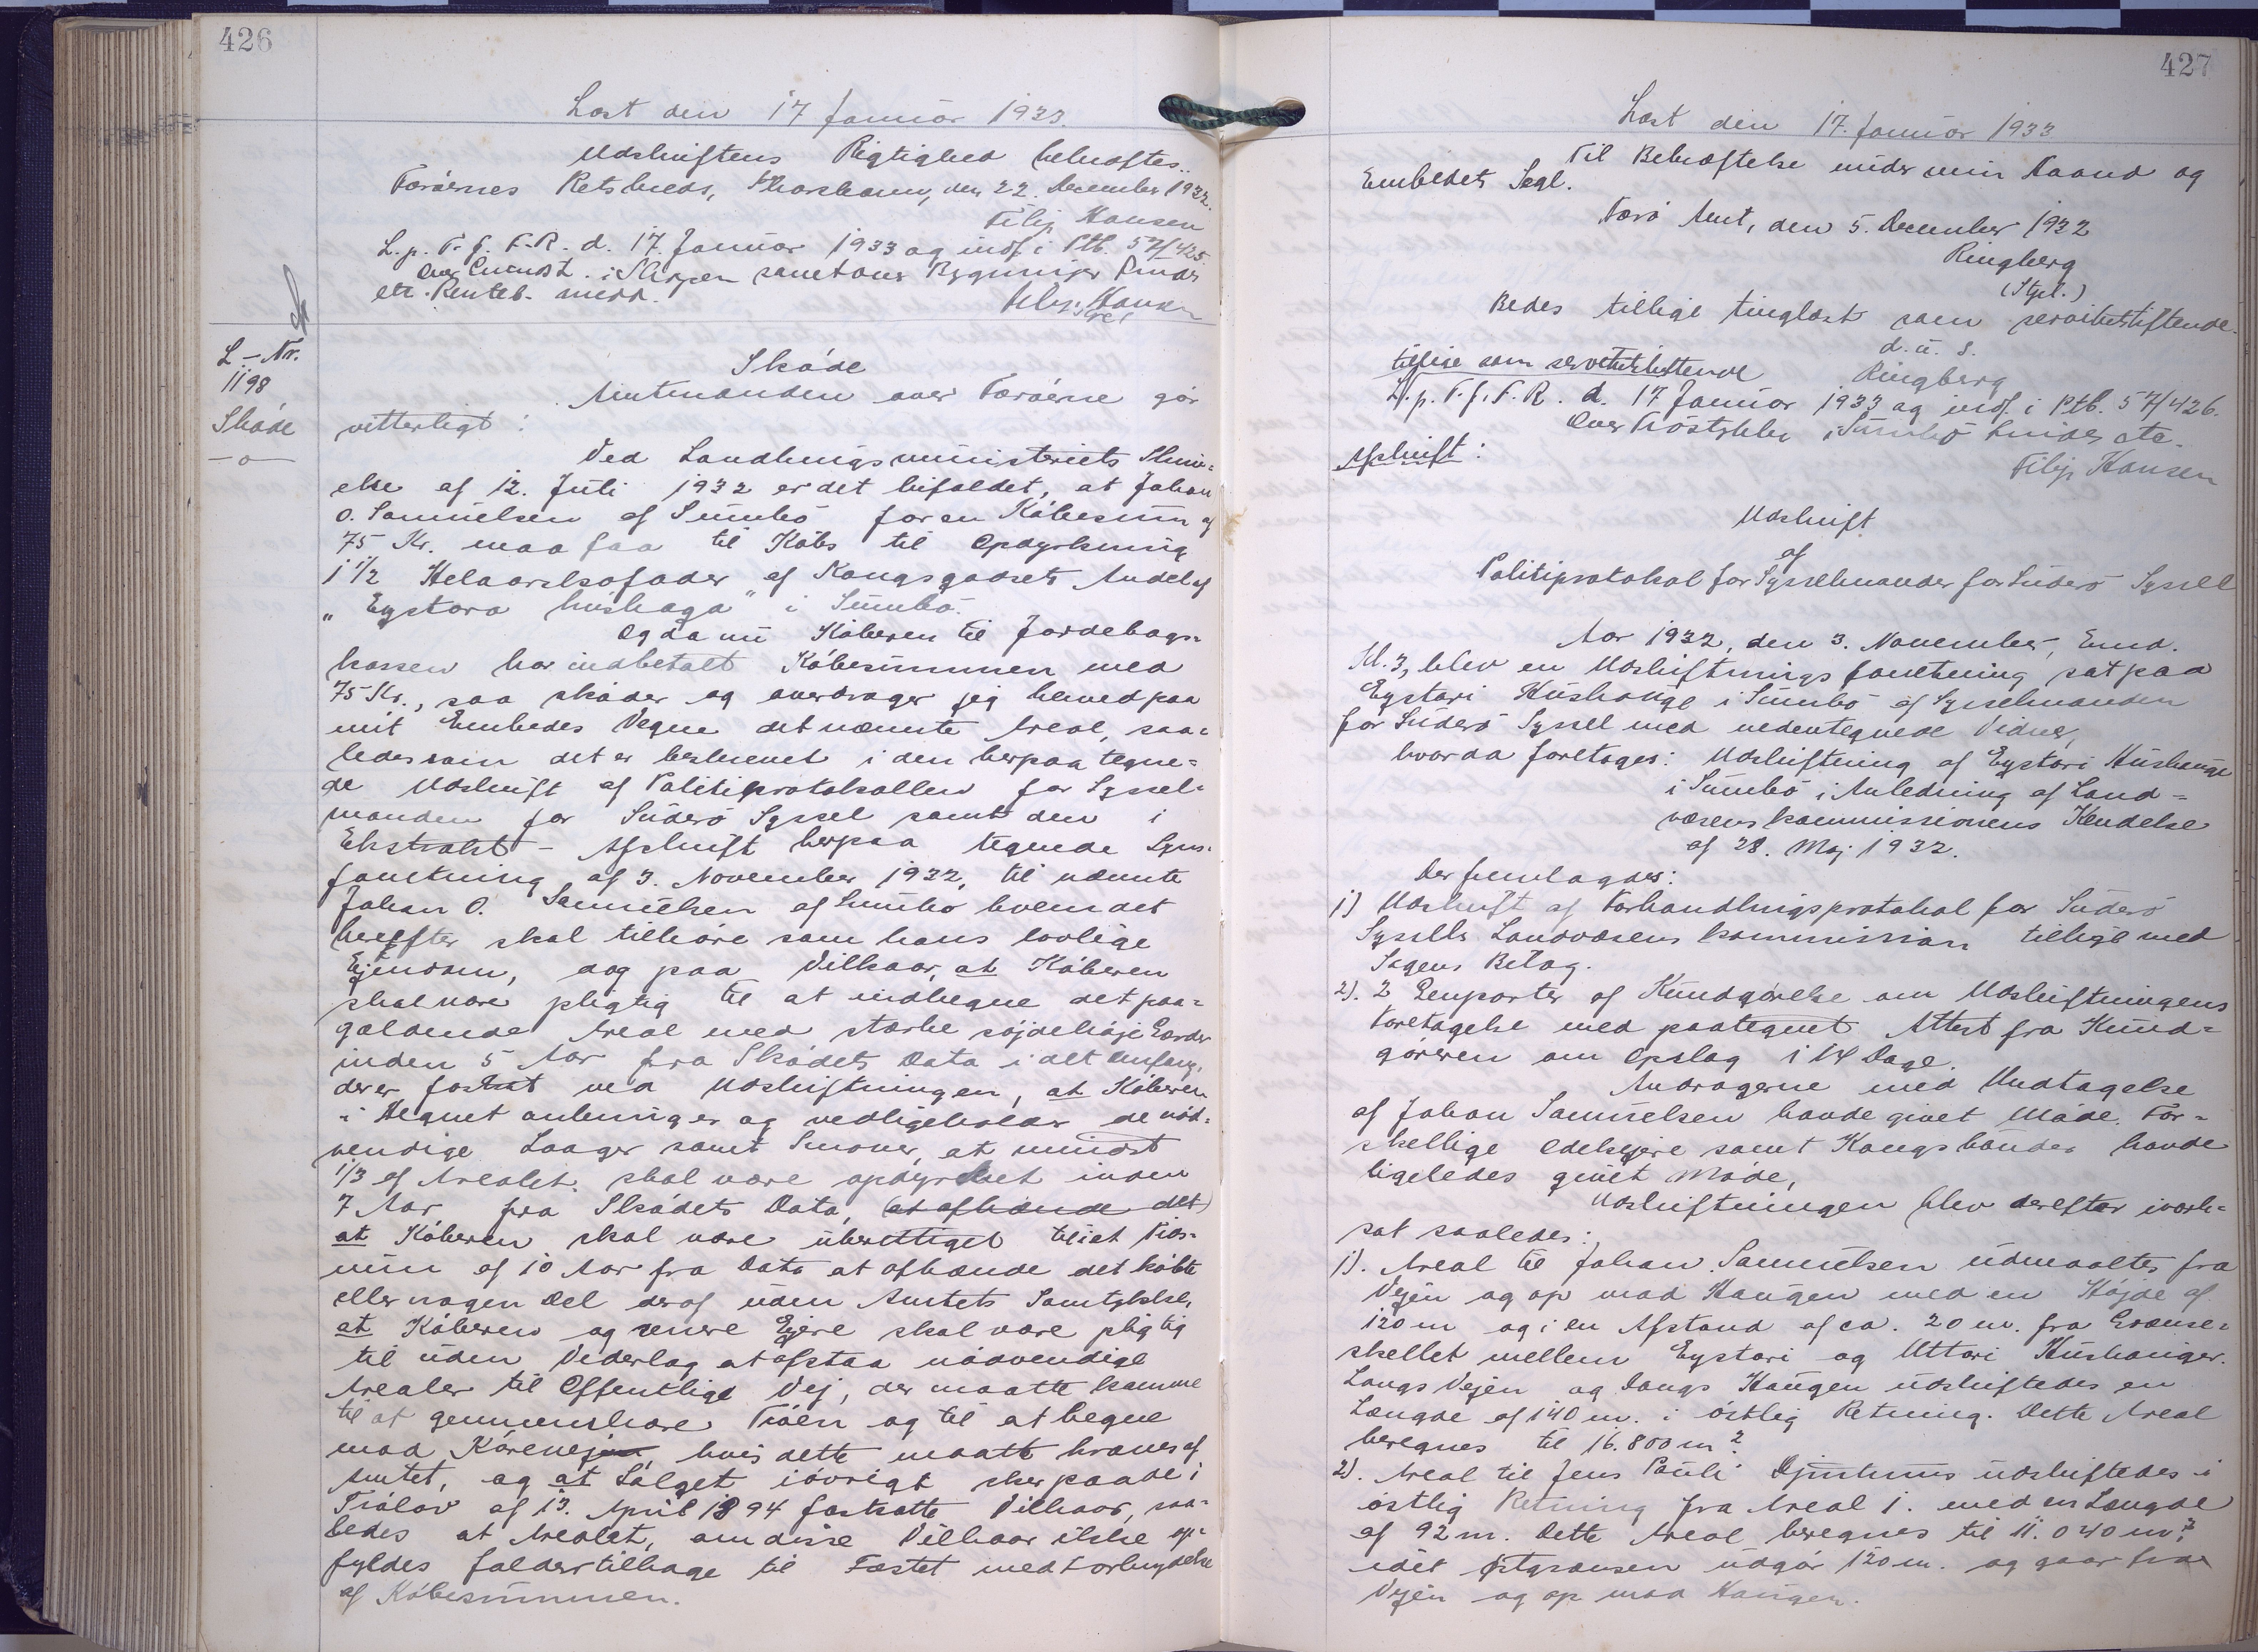 426
Læst den 17 Januar 1933.
Udskriftens Rigtighed bekræftes.
Færøernes Retskreds, Thorshavn, den 22. December 1932.
Filip Hansen
L. p. T. f. F. R. d. 17. Januar 1933 og indf. i Ptb. 57/425.
etc. Renteb. anm.
L-Nr.
1198
Skøde
Skøde
Amtmanden over Færøerne gør
vitterligt:
Ved Landbrugsministeriets Skriv-
else af 12. Juli 1932 er det bifaldet, at Johan
O. Samuelsen af Sumbø for en Købesum af
75 Kr. maa faa til Købs til Opdyrkning
1 1/2 Helaarskofoder af Kongsgodsets Andel af
"Eystara húshaga" i Sumbø.
Og da nu Køberen til Jordebogs-
kassen har indbetalt Købesummen med
75 Kr., saa skøder og overdrager jeg herved paa
mit Embedes Vegne det nævnte Areal, saa-
ledes som det er beskrevet i den herpaa tegne-
de Udskrift af Politiprotokollen for Syssel-
manden for Suderø Syssel samt den i
Ekstrakt - Afskrift herpaa tegnede Syns-
forretning af 3. November 1932, til nævnte
Johan O. Samuelsen af Sumbø hvem det
herefter skal tilhøre som hans lovlige
Ejendom, dog paa Vilkaar, at Køberen
skal være pligtig til at indhegne det paa-
gældende Areal med stærke søjdehøje Gærder
inden 5 Aar fra Skødets Data i det Omfang,
der er fastsat ved Udskiftningen, at Køberen
i Hegnet anbringer og vedligeholder de nød-
vendige Laager samt Smover, at mindst
1/3 af Arealet skal være opdyrket inden
7 Aar fra Skødets Data, (at afhænde det)
at Køberen skal være uberettiget til i et Tids-
rum af 10 Aar fra Dato at afhænde det købte
eller nogen Del deraf uden Amtets Samtykke,
at Køberen og senere Ejere skal være pligtig
til uden Vederlag at afstaa nødvendige
Arealer til Offentlige Vej, der maatte komme
til at gennemskære Trøen og til at hegne
mod Kørevejen hvis dette maatte kræves af
Amtet, og at Salget iøvrigt sker paa de i
Trølov af 13. April 1894 fastsatte Vilkaar, saa-
ledes at Arealet, om disse Vilkaar ikke op-
fyldes falder tilbage til Fæstet med Forbrydelse
af Købesummen.
427
Læst den 17. Januar 1933
Til Bekræftelse under min Haand og
Embedets Segl.
Færø Amt, den 5. December 1932
Ringberg
(Sgl.)
Bedes tillige tinglæst som servitutstiftende.
d. u. s.
Ringberg
tillige som servitutstiftende
L. p. T. f. F. R. d. 17 Januar 1933 og indf. i Ptb. 57/426.
Filip Hansen
Afskrift:
Udskrift
af
Politiprotokol for Sysselmanden for Suderø Syssel
Aar 1932, den 3. November, Emd.
Kl. 3, blev en Udskiftningsforretning sat paa
Eystari Húshauge i Sumbø af Sysselmanden
for Suderø Syssel med nedentegnede Vidner,
hvor da foretoges: Udskiftning af Eystari Húshauge
i Sumbø i Anledning af Land-
væsenskommissionens Kendelse
af 28. Maj 1932.
Der fremlagdes:
1) Udskrift af Forhandlingsprotokol for Suderø
Syssels Landvæsenskommission tillige med
Sagens Bilag.
2). 2 Genparter af Kundgørelse om Udskiftningens
Foretagelse med paategnet Attest fra Kund-
gøreren om Opslag i 14 Dage.
Andragerne med Undtagelse
af Johan Samuelsen havde givet Møde. For-
skellige Odelsejere samt Kongsbønder havde
ligeledes givet Møde,
Udskiftningen blev derefter iværk-
sat saaledes:
1). Areal til Johan Samuelsen udmaaltes fra
Vejen og op mod Haugen med en Højde af
120 m og i en Afstand af ca. 20 m. fra Grænse-
skellet mellem Eystari og Uttari Húshauger.
Langs Vejen og langs Haugen udskiftedes en
Længde af 140 m. i østlig Retning. Dette Areal
beregnes til 16.800 m².
2). Areal til Jens Pauli Djurhuus udskiftedes i
østlig Retning fra Areal 1. med en Længde
af 92 m. Dette Areal beregnes til 11.040 m²,
idet Østgrænsen udgør 120 m. og gaar fra
Vejen og op mod Haugen.